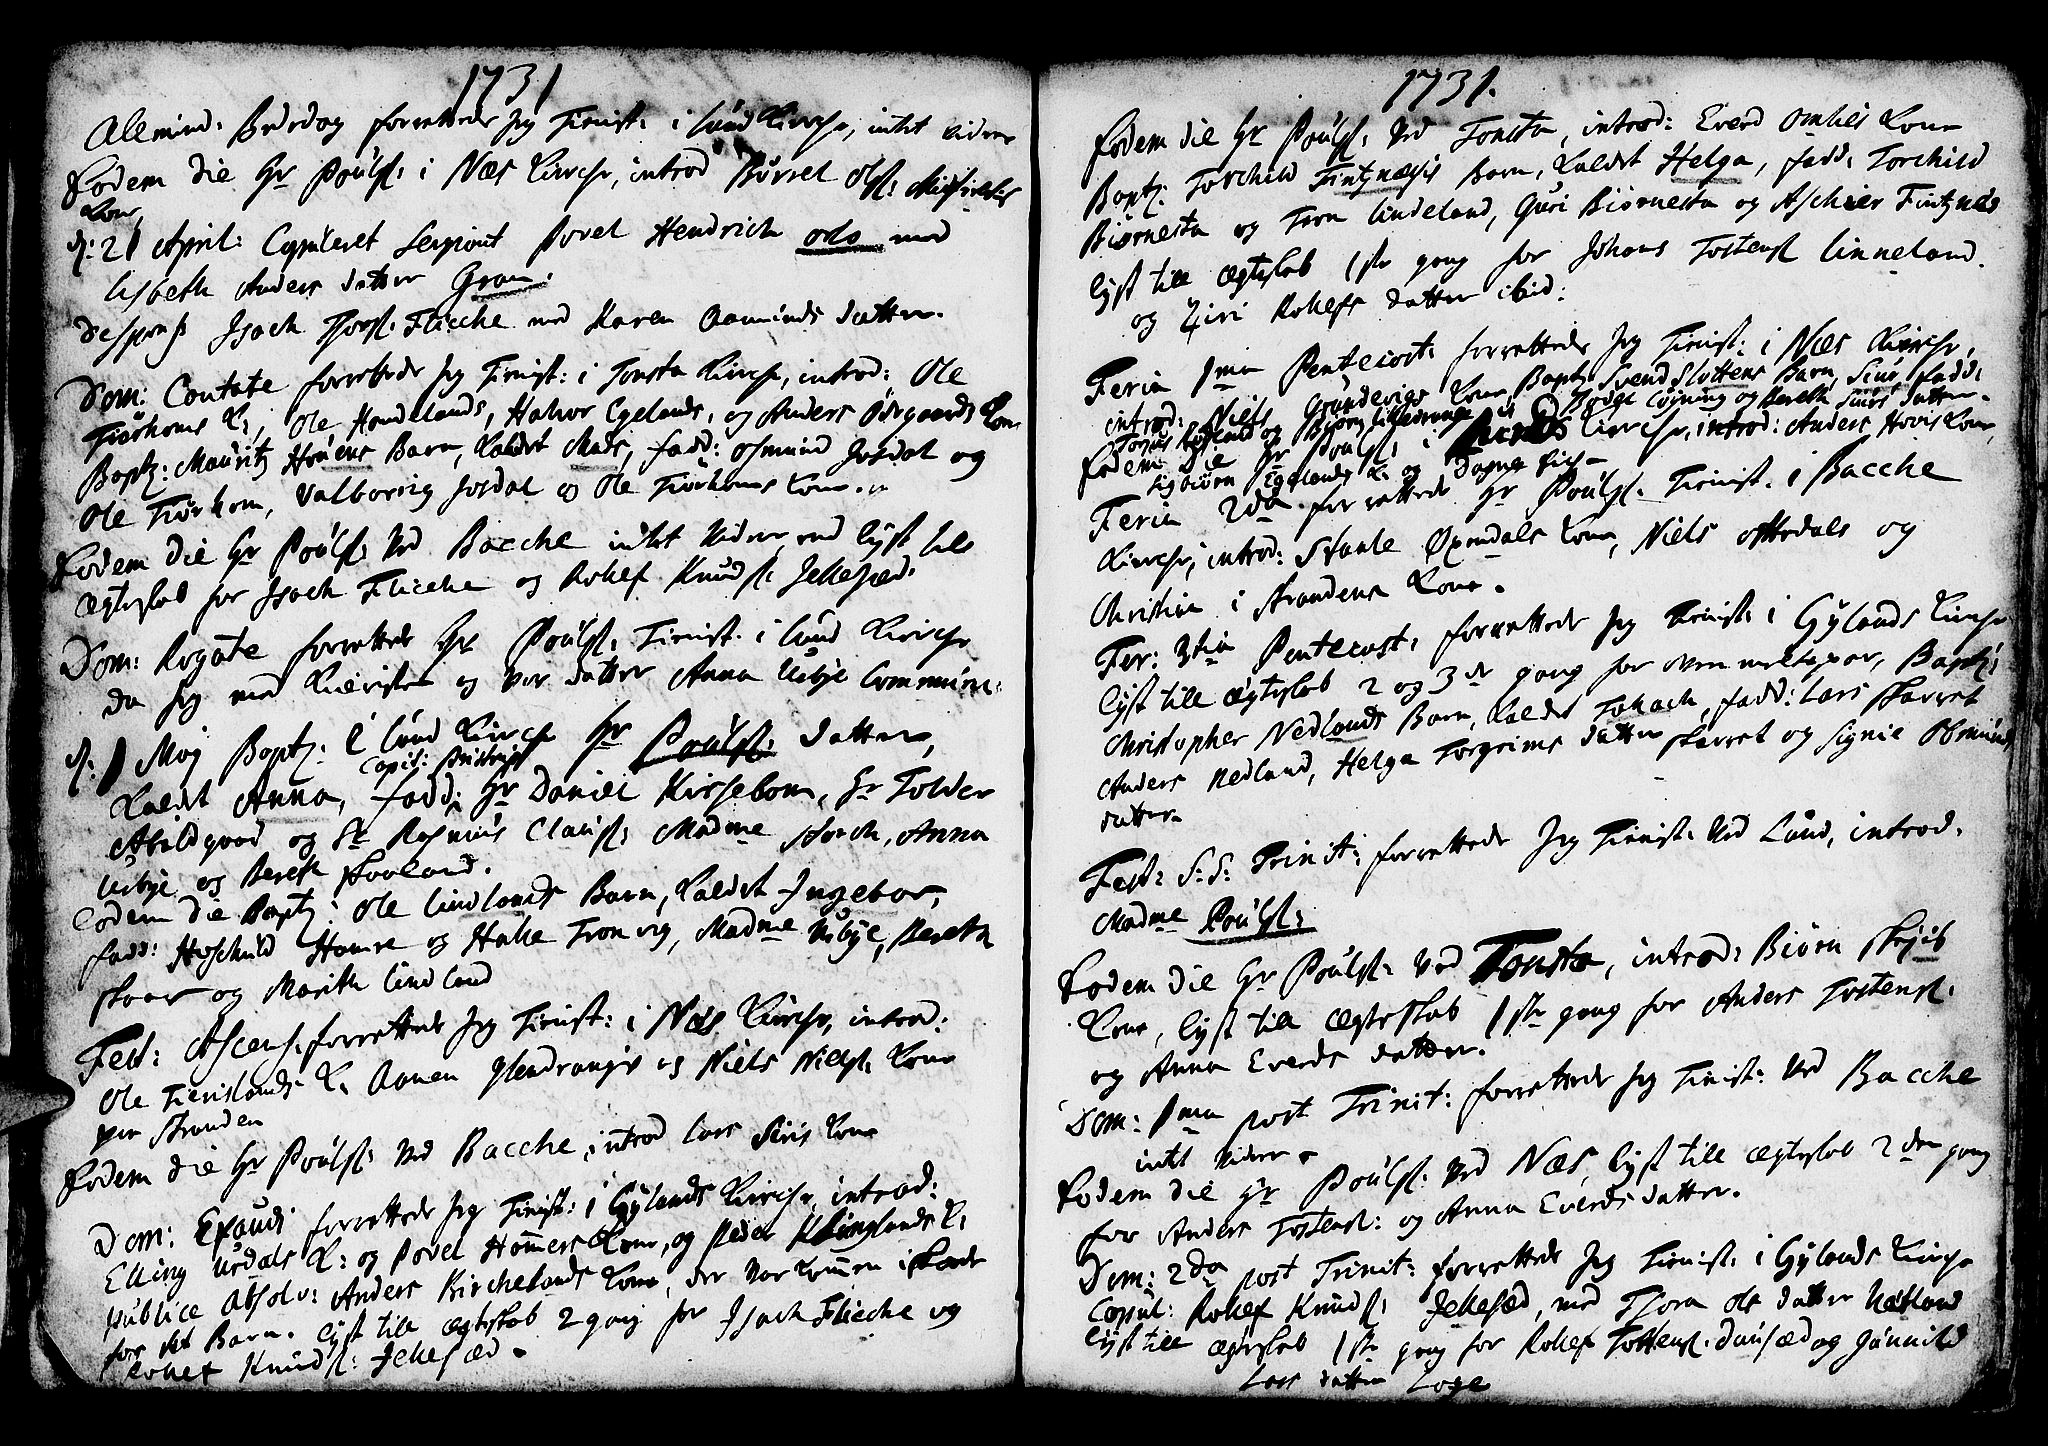 1731
Alemind: Bededag forrettede Jeg Tienist: i Lund Kirche, intet videre
Eodem die Hr Poulss: i Næs Kirche, introd Børrel Ols:
Kone,
d: 21 April: Copuleret Serjiant Povel Hendrich odo med
Lisbeth Anders datter Gram.
Despons: Isach Tors: Flicche med Karen Aamunds datter.
Dom: Cantate forrettede Jeg Tienist: i Tonsta Kirche, introd: Ole
Tiørhoms K:, Ole Haudelands, Halvor Egelands, og Anders Ødegaards Kone
Baptz: Mauritz Houens Barn, Kaldet Mads, fadd: Osmund Josdal og
Ole Tiørhom, Valborrig Josdal og Ole Tiørhoms Kone.
Eodem die Hr Poulss: ved Bacche intet videre end lyst till
Ægteskab for Isach Flicche og Rolief Knuds: Jellesæd.
Dom: Rogate forrettede Hr Poulss: Tienist: i Lund Kirche
da Jeg med Kieriste og vor datter Anna Urbye Communi:
d: 1 Maj Baptz: i Lund Kirche Hr Poulss: datter,
Capit:
Kaldet Anna, fadd: Hr Daniel Kirsebom, Sr Tolder
Abildgaard og Sr Rasmus Claus: Madme Storch, Anna
Urbye og Bereth Skaaland.
Eodem die Baptz: Ole Lindlands Barn, Kaldet Ingebor,
fadd: Hoschuld Hamre og Halie Tronvig, Madme Urbye, Bereth
Skaar og Marith Lindland
Fest: Ascens: forrettede Jeg Tienist: i Næs Kirche, introd:
Ole Tierislands K: Aanen Glendrangis og Niels Niels: Kone
paa Stranden
Eodem die Hr Poulss: ved Bacche, introd Lars Siris Kone
Dom: Exaudi forrettede Jeg Tienist: i Gylands Kirche, introd:
Elling Urdals K: og Povel Hommers Kone, og Peder Klunglands K:
publice absolv: Anders Birchelands Kone, der var kommen i
for det Barn. lyst till ægteskab 2 gang for Isach Flicche og
Rolief Knuds: Jellesæd.
1731.
Eodem die Hr Poulss: ved Tonsta, introd: Everd Omlies Kone
Baptz: Torchild Fintznæsis Barn, Kaldet Helga, fadd: Torchild
Biørnesta og Tron Lindeland, Guri Biørnesta og Aschier Fintznes
lyst till ægteskab 1ste gang for Johans Tostens: Linneland.
og Ziri Roliefs datter ibid:
Feria 1ma Pentecost: forrettede Jeg Tienist: i Næs Kirche,
introd: Niels Grundevigs Kone, Baptz: Svend Slottens Barn, Siur, fadd:
og Bereth Siurs datter.
Eodem die Hr Poulss: i Lunds Kirche, introd: Anders Hovis Kone,
Sigbiørn Egelands K: og Dagne
Feria 2da forrettede Hr Poulss: Tienist: i Bacche
Kirche, introd: Staale Øxendals Kone, Niels Ottedals og
Christian i Strandens Kone.
Fer: 3tia Pentecost: forrettede Jeg Tienist: i Gylands Kirche
lyst till ægteskab 2 og 3de gang for oven meltepar, Baptz:
Christopher Nedlands Barn, Kaldet Tollach, fadd: Lars Skarret
Anders Nedland, Helga Torgrims datter Skarret og Signie Osmunds
datter
Fest: S: S: Trinit: forrettede Jeg Tienist: ved Lund, introd.
Madme Poulss:
Eodem die Hr Poulss: ved Tonsta, introd: Biørn Skejb
Kone, lyst till ægteskab 1ste gang for Anders Tostens:
og Anna Everds datter.
Dom: 1ma post Trinit: forrettede Jeg Tienist: ved Bacche
intet videre
Eodem die Hr Poulss: ved Næs, lyst till ægteskab 2den gang
for Anders Tostens: og Anna Everds datter.
Dom: 2da post Trinit: forrettede Jeg Tienist: i Gylands Kirche
Copul: Rolief Knuds: Jellesæd, med Thora Ols datter Netland
lyst till ægteskab 1ste gang for Rolief Tostens: Dausæd og Gunnild
Lars datter Loge